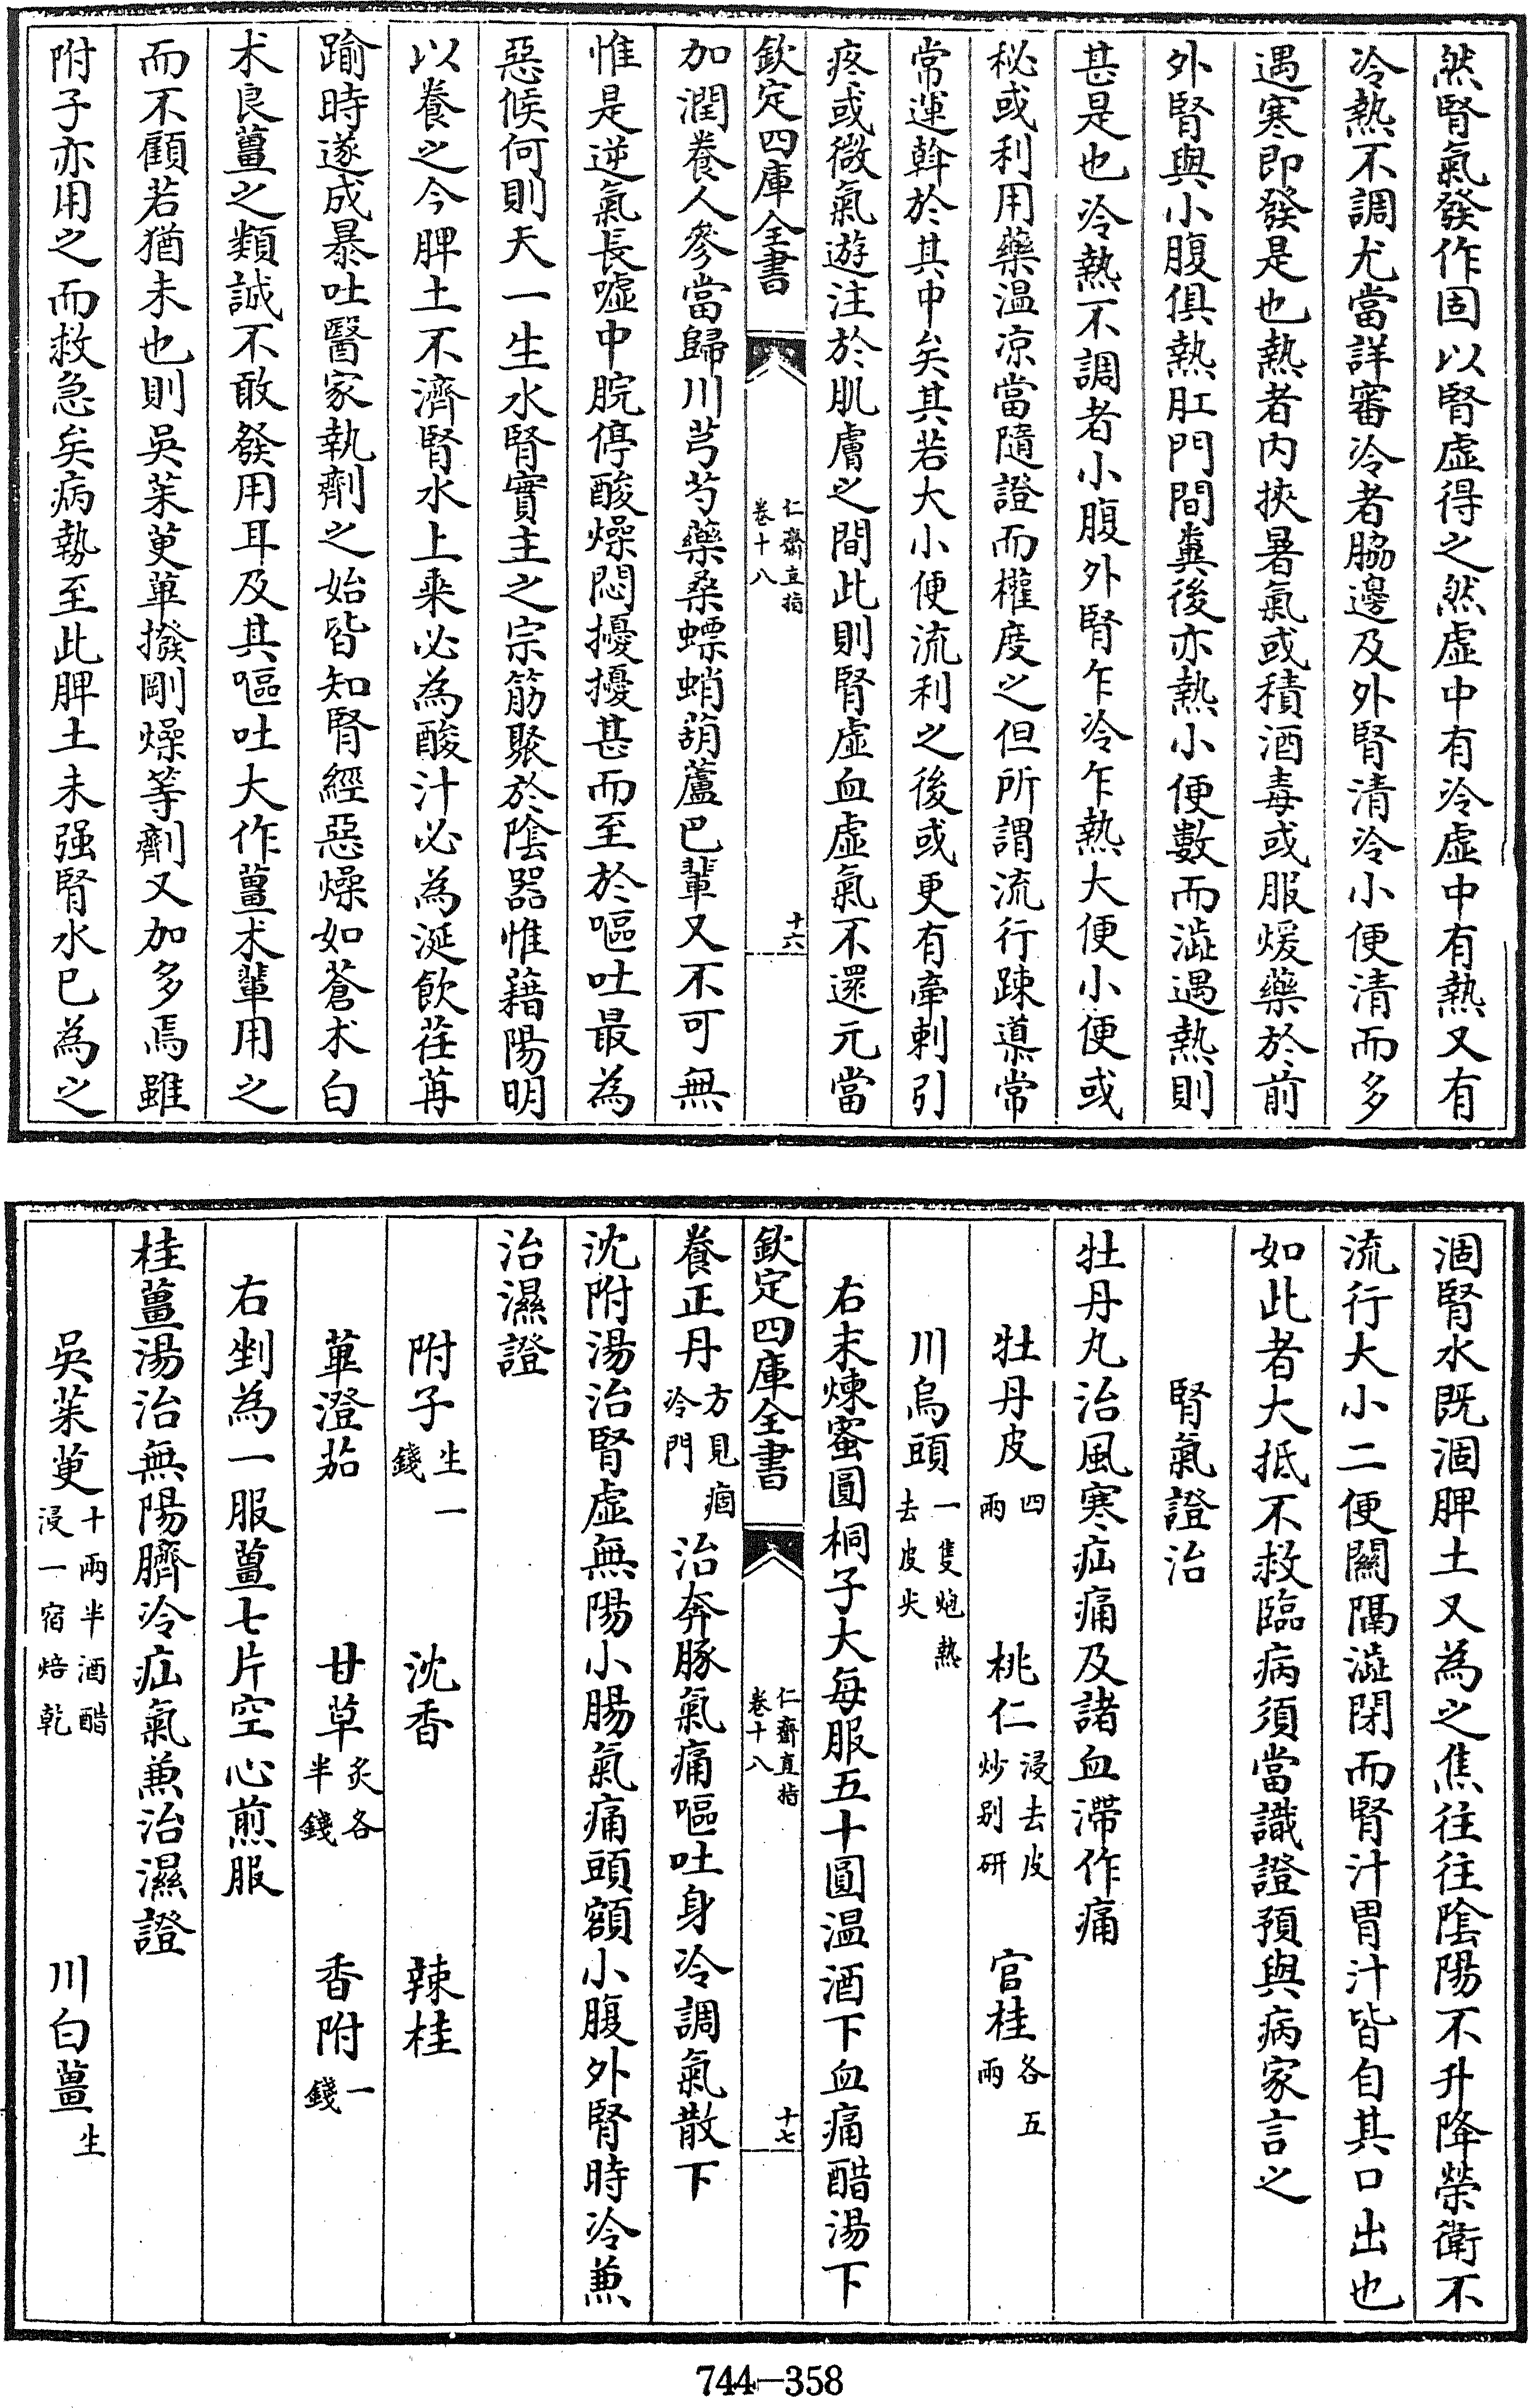 然腎氣發作固以腎虚得之然虚中有冷虚中有熱又有
冷熱不調尤當詳審冷者脇邊及外腎清冷小便清而多
遇寒即發是也熱者内挾暑氣或積酒毒或服煖藥於前
外腎與小腹俱熱肛門間糞後亦熱小便數而澁遇熱則
甚是也冷熱不調者小腹外腎乍冷乍熱大便小便或
秘或利用藥温凉當隨證而權度之但所謂流行踈導常
常運斡於其中矣其若大小便流利之後或更有牽刺引
疼或微氣遊注於肌膚之間此則腎虚血虚氣不還元當
欽定四庫全書
仁齋直指
卷十八
十六
加潤養人參當歸川芎芍藥桑螵蛸葫蘆巴輩又不可無
惟是逆氣長嘘中脘停酸燥悶擾擾甚而至於嘔吐最為
惡候何則天一生水腎實主之宗筋聚於陰器惟藉陽明
以養之今脾土不濟腎水上乘必為酸汁必為涎飲荏苒
踰時遂成暴吐醫家執劑之始皆知腎經惡燥如蒼术白
术良薑之類誠不敢發用耳及其嘔吐大作薑术輩用之
而不顧若猶未也則吳茱萸蓽撥剛燥等劑又加多焉雖
附子亦用之而救急矣病勢至此脾土未强腎水已為之
涸腎水既涸脾土又為之焦往往陰陽不升降榮衛不
流行大小二便關隔澁閉而腎汁胃汁皆自其口出也
如此者大抵不救臨病須當識證預與病家言之
腎氣證治
牡丹丸治風寒疝痛及諸血滯作痛
牡丹皮四兩 桃仁浸去皮炒别研 官桂各五兩
川烏頭一隻炮熟去皮尖
右末煉蜜圓桐子大每服五十圓温酒下血痛醋湯下
欽定四庫全書
仁齋直指
卷十八
十七
養正丹方見痼冷門 治奔豚氣痛嘔吐身冷調氣散下
沈附湯治腎虚無陽小腸氣痛頭額小腹外腎時冷兼
治濕證
附子生一錢 沈香 辣桂
蓽澄茄 甘草炙各半錢 香附一錢
右剉為一服薑七片空心煎服
桂薑湯治無陽臍冷疝氣兼治濕證
吳茱萸十兩半酒醋浸一宿焙乾 川白薑生
744-358